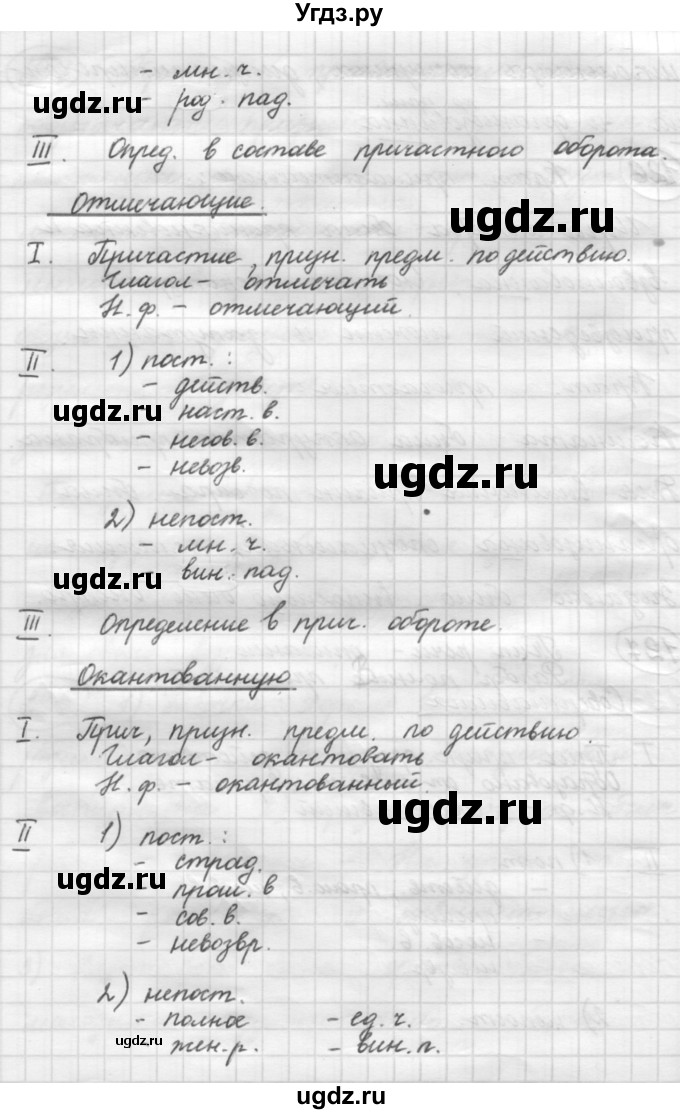 Угдз.ру
- мн. ч.
- род. пад.
ugdz.ru
III. Опред. в составе причастного оборота.
Отмечающие.
ugdz.ru
I. Причастие, призн. предм. по действию.
Глагол - отмечать
Н. ф. - отмечающий.
II. 1) пост.:
- действ.
- наст. в.
ugdz.ru
- несов. в.
- невозв.
ugdz.ru
2) непост.
- мн. ч.
- вин. пад.
ugdz.ru
III. Определение в прич. обороте.
Окантованную
I. Прич, призн. предм. по действию.
Глагол - окантовать
Н. ф. - окантованный.
ugdz.ru
II 1) пост.:
- страд.
- прош. в
ugdz.ru
- сов. в.
- невозвр.
2) непост.
- полное - ед. ч.
ugdz.ru
жен. р. - вин. п.
ugdz.ru